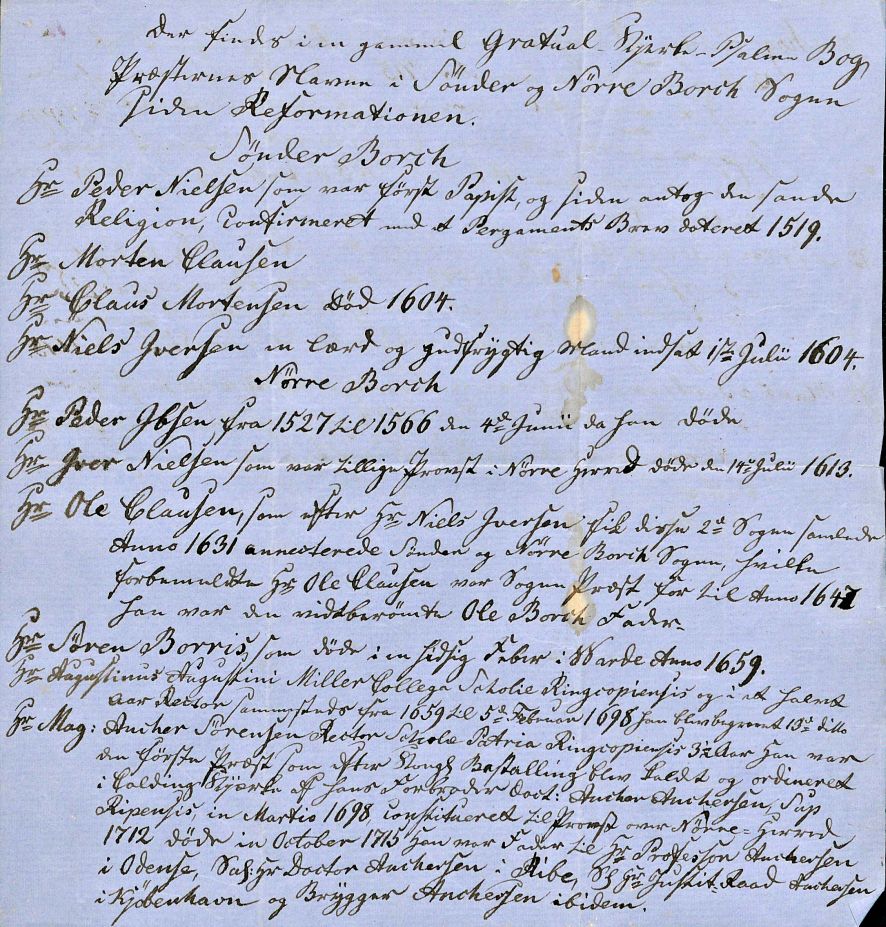 Der findes i en gammel Gratual-Kjerke-Psalme Bog
Præsternes Navne i Sönder og Nörre Borch Sogne
siden Reformationen.
Sönder Borch
Hr Peder Nielsen som var först Papist, og siden antog den sande
Religion, Confirmeret med et Pergaments Brev dateret 1519.
Hr Morten Clausen
Hr Claus Mortensen död 1604.
Hr Niels Iversen en lærd og gudfrygtig Mand indsat Julii 1604.
Nörre Borch
Hr Peder Ibsen fra 1527 til 1566 den 4de Junii da han döde
Hr Iver Nielsen som var tillige Provst i Nörre Herred döde den 14de Julii 1613.
Hr Ole Clausen, som efter Hr Niels Iversen fik disse 2de Sogne samlede
Anno 1631 annecterede Sönder og Nörre Borch Sogne, hvilke
forbemeldte Hr Ole Clausen var Sogne Præst for til Anno 1647
han var den vidtberömte Ole Borch Fader-
Hr Sören Borris, som döde i en hidsig Feber i Warde Anno 1659.
Hr Augustinus Augustini Miller Collega Scholie Ringcopiensis og i et halvt
Aar Rector sammesteds fra 1659 til 5te Februar 1698 han blev begravet 15de ditto
Hr Mag: Ancher Sörensen Rector Scholæ Patria Ringcopiensis 3½ Aar han var
den förste Præst som efter Kongl Bestalling blev kaldt og ordineret
i Colding Kjerke af hans Forbroder Doct: Ancher Anchersen, Sup
Ripensis, in Martio 1698, constitueret til Provst over Nörre-Herred
1712 döde in October 1715 han var Fader til Hr Professor Anchersen
i Odense, Sal: Hr Doctor Anchersen i Ribe, Sl Hr Justit-Raad Anchersen
i Kjöbenhavn og Brygger Anchersen ibidem.